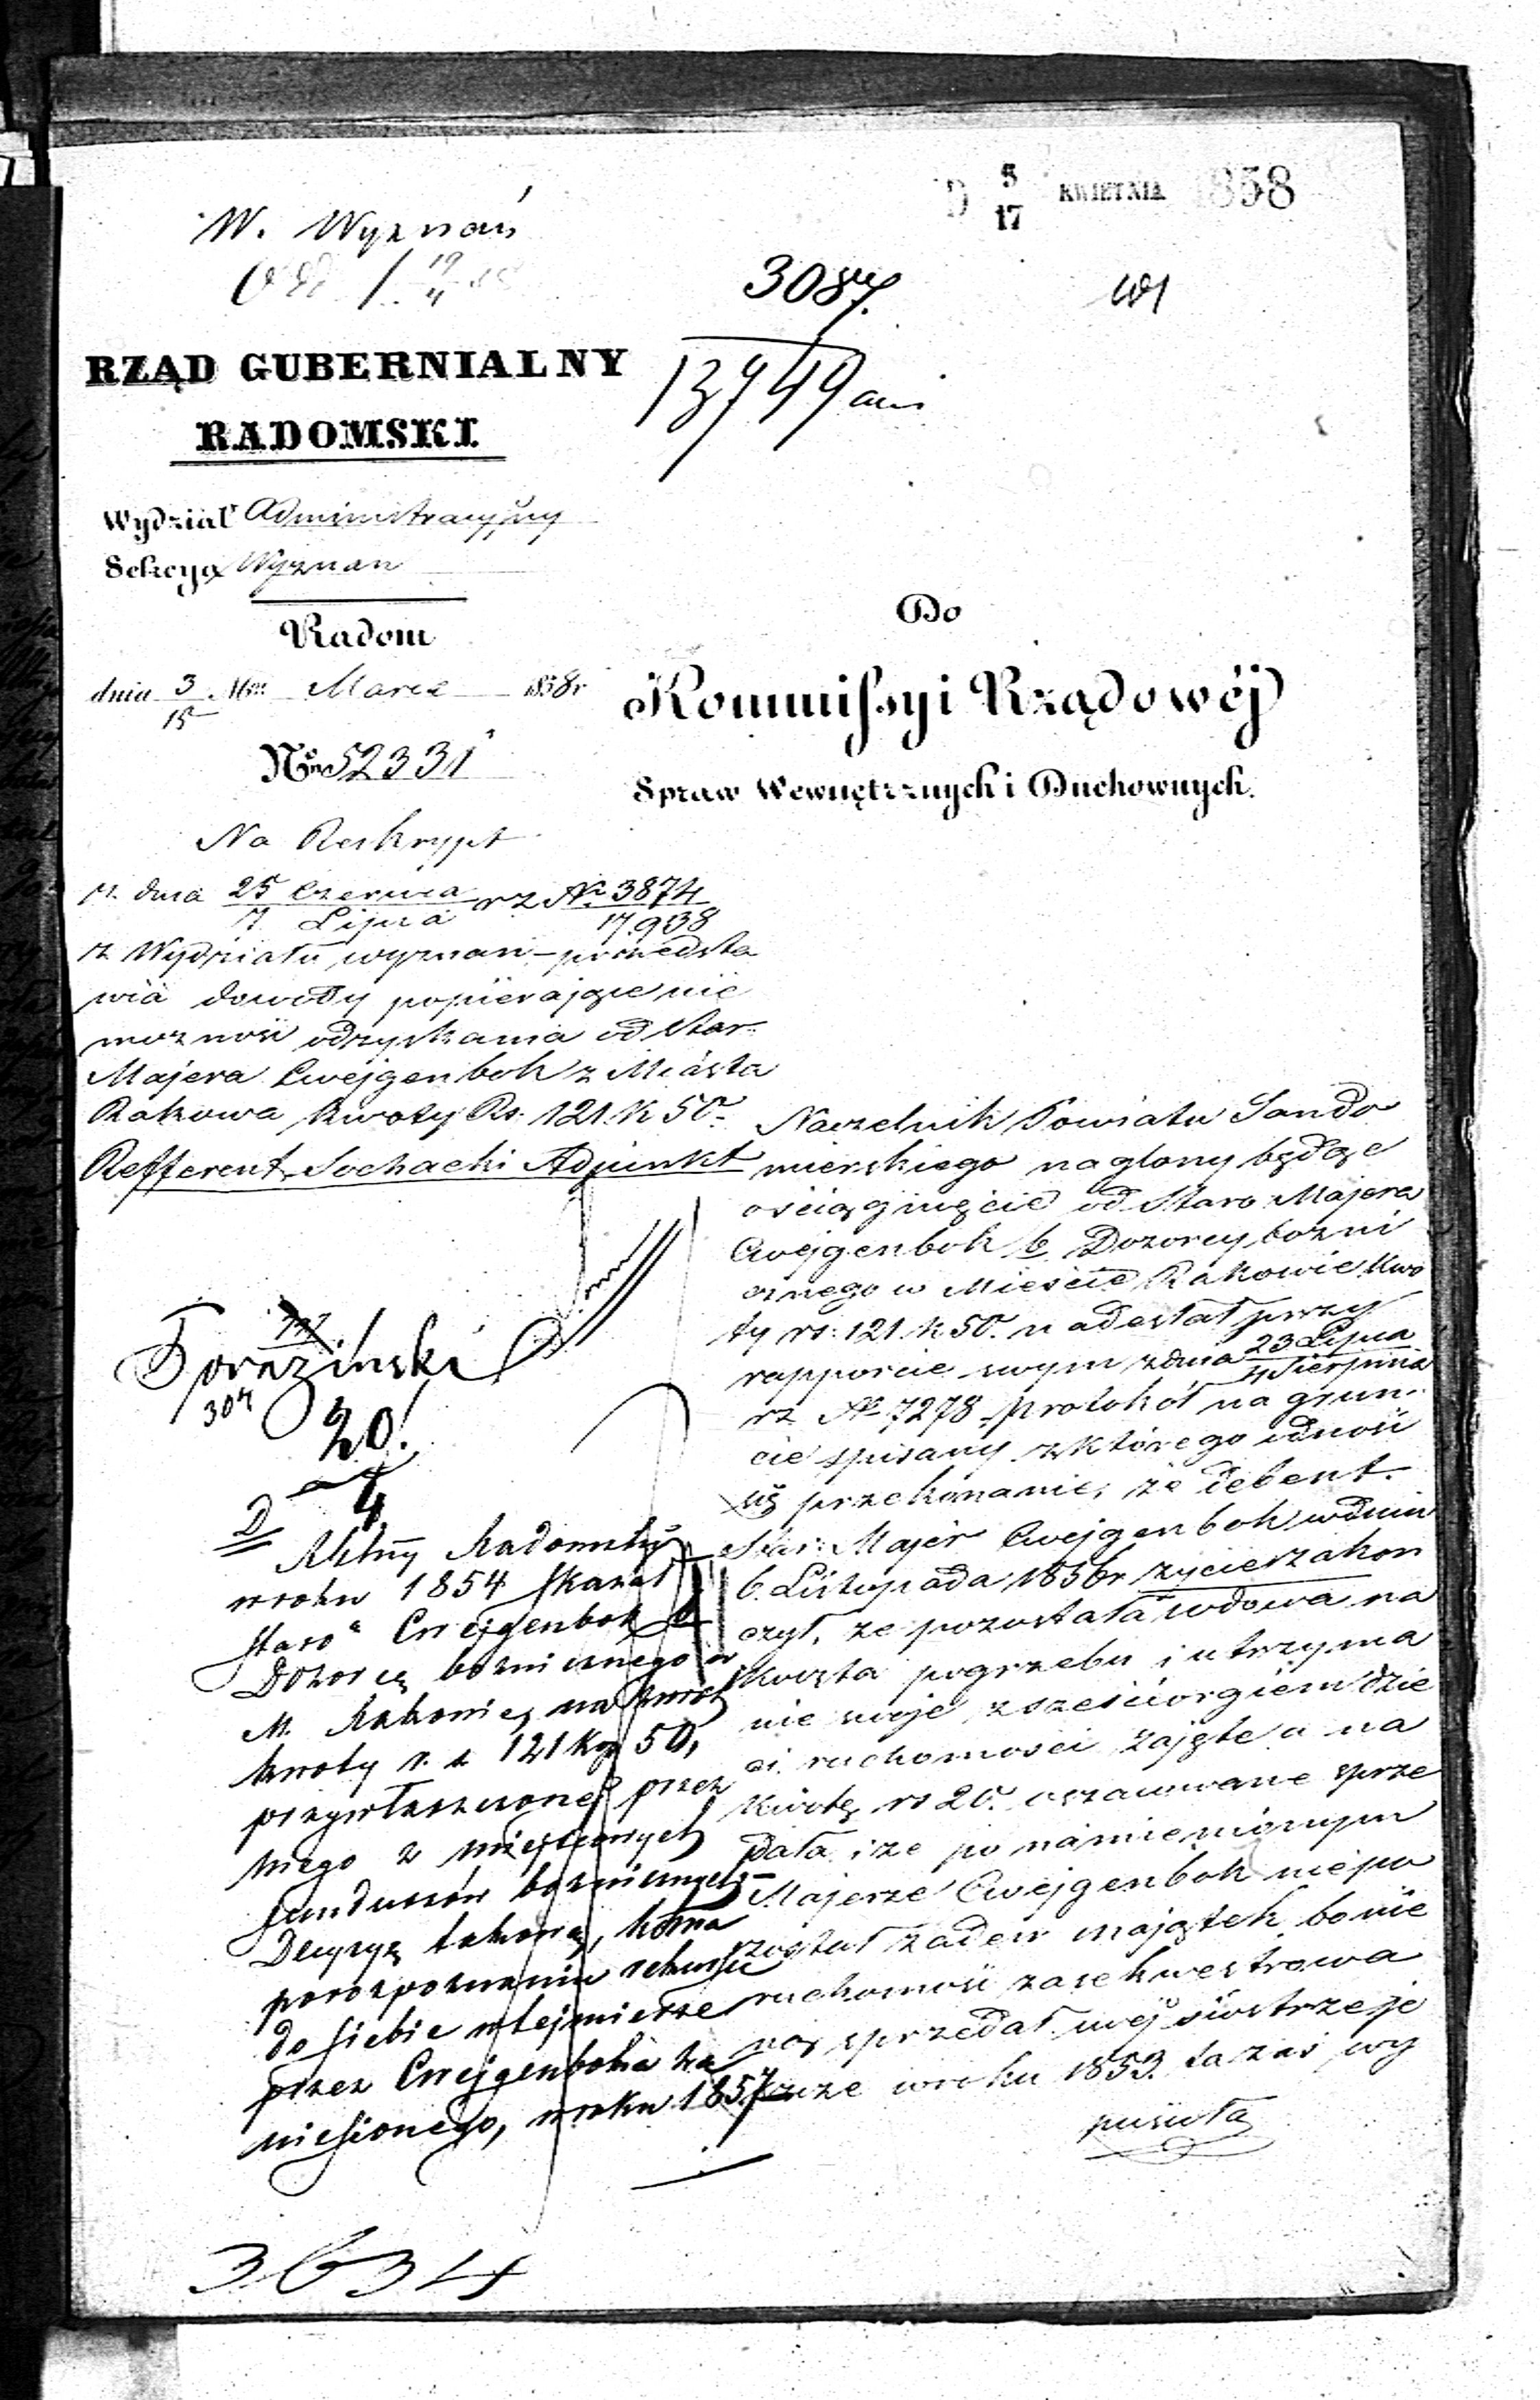 D 5/17 KWIETNIA 1858
W. Wyznań
3087.
13749
RZĄD GUBERNIALNY
RADOMSKI.
Wydział Administracyjny
Sekcya Wyznan
Radom
dnia 3/15 Mca Marca 1858 r
No 52331
Do
Kommissyi Rządowéj
Spraw Wewnętrznych i Duchownych.
Na Reskrypt
z dnia 25 Czerwca / 7 Lipca rz No 3874 / 17.938
z Wydziału wyznan – przedsta
wia dowody popierające nie
mozność odzyskania od Star.
Majera Cwejgenbok z Miasta
Rakowa kwoty Rs. 121. k 50.
Refferent Sochacki Adjunkt
Naczelnik Powiatu Sando
mierskiego naglony będąc
o ściągnięcie od Staro: Majera
Cwejgenbok b. Dozorcy bozni
cznego w Mieście Rakowie kwo
ty rs: 121 k 50. nadesłał przy
rapporcie swym z dnia 23 Lipca / 4 Sierpnia
rz No 7278 protokół na grun-
cie spisany z którego
się przekonanie, że debent.
Star: Majer Cwejgenbok w dniu
6. Listopada 1856 r zycie zakon
czył, ze pozostała wdowa na
koszta pogrzebu i utrzyma
nie swoje z sześciorgiem dzie
ci ruchomości zajęte a na
kwotę rs 20. oszacowane sprze
dała i ze po namienionym
Majerze Cwejgenbok nie po
został żaden majątek bo nie
ruchomość zasekwestrowa
ną sprzedał swéj siostrze je
szcze w roku 1853. ta zaś wy
puściła
304
20.
4
D
Radomski
w roku 1854 skazał
Staro Cwejgenbok b
Dozorcę bozniczego w
M. Rakowie, na zwrot
kwoty r. s 121 kop 50,
przywłaszczonej przez
niego z miejscowych
funduszów bozniczych –
Decyzyą takową,
po rozpoznaniu rekursu
do siebie w tejmierze
przez Cwejgenboka za
niesionego, w roku 1857
3634